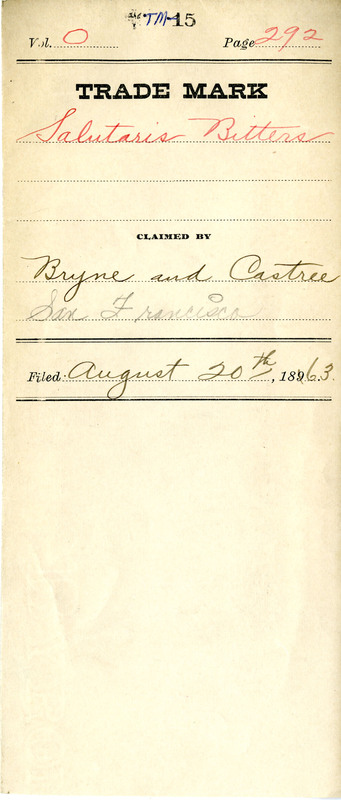 TM 15
Vol. 0 Page 292
TRADE MARK
Salutaris Bitters
CLAIMED BY
Bryne and Castree
San Francisco
Filed August 20th, 1863.